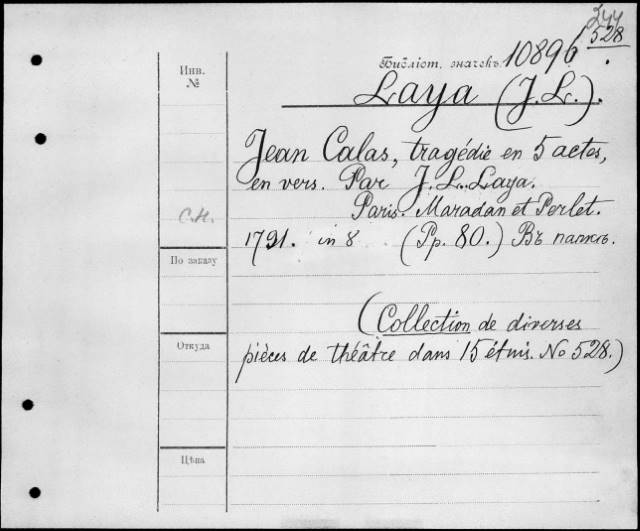 244
528
Библіот. значекъ. 10896
Laya (J. L.).
Инв.
№
Jean Calas, tragédie en 5 actes,
en vers. Par J. L. Laya.
Paris. Maradan et Perlet.
С.Н.
1791. in 8 (Pp. 80.) Въ папкѣ.
По заказу
(Collection de diverses
Откуда
pièces de théâtre dans 15 étuis. No 528.)
Цѣна